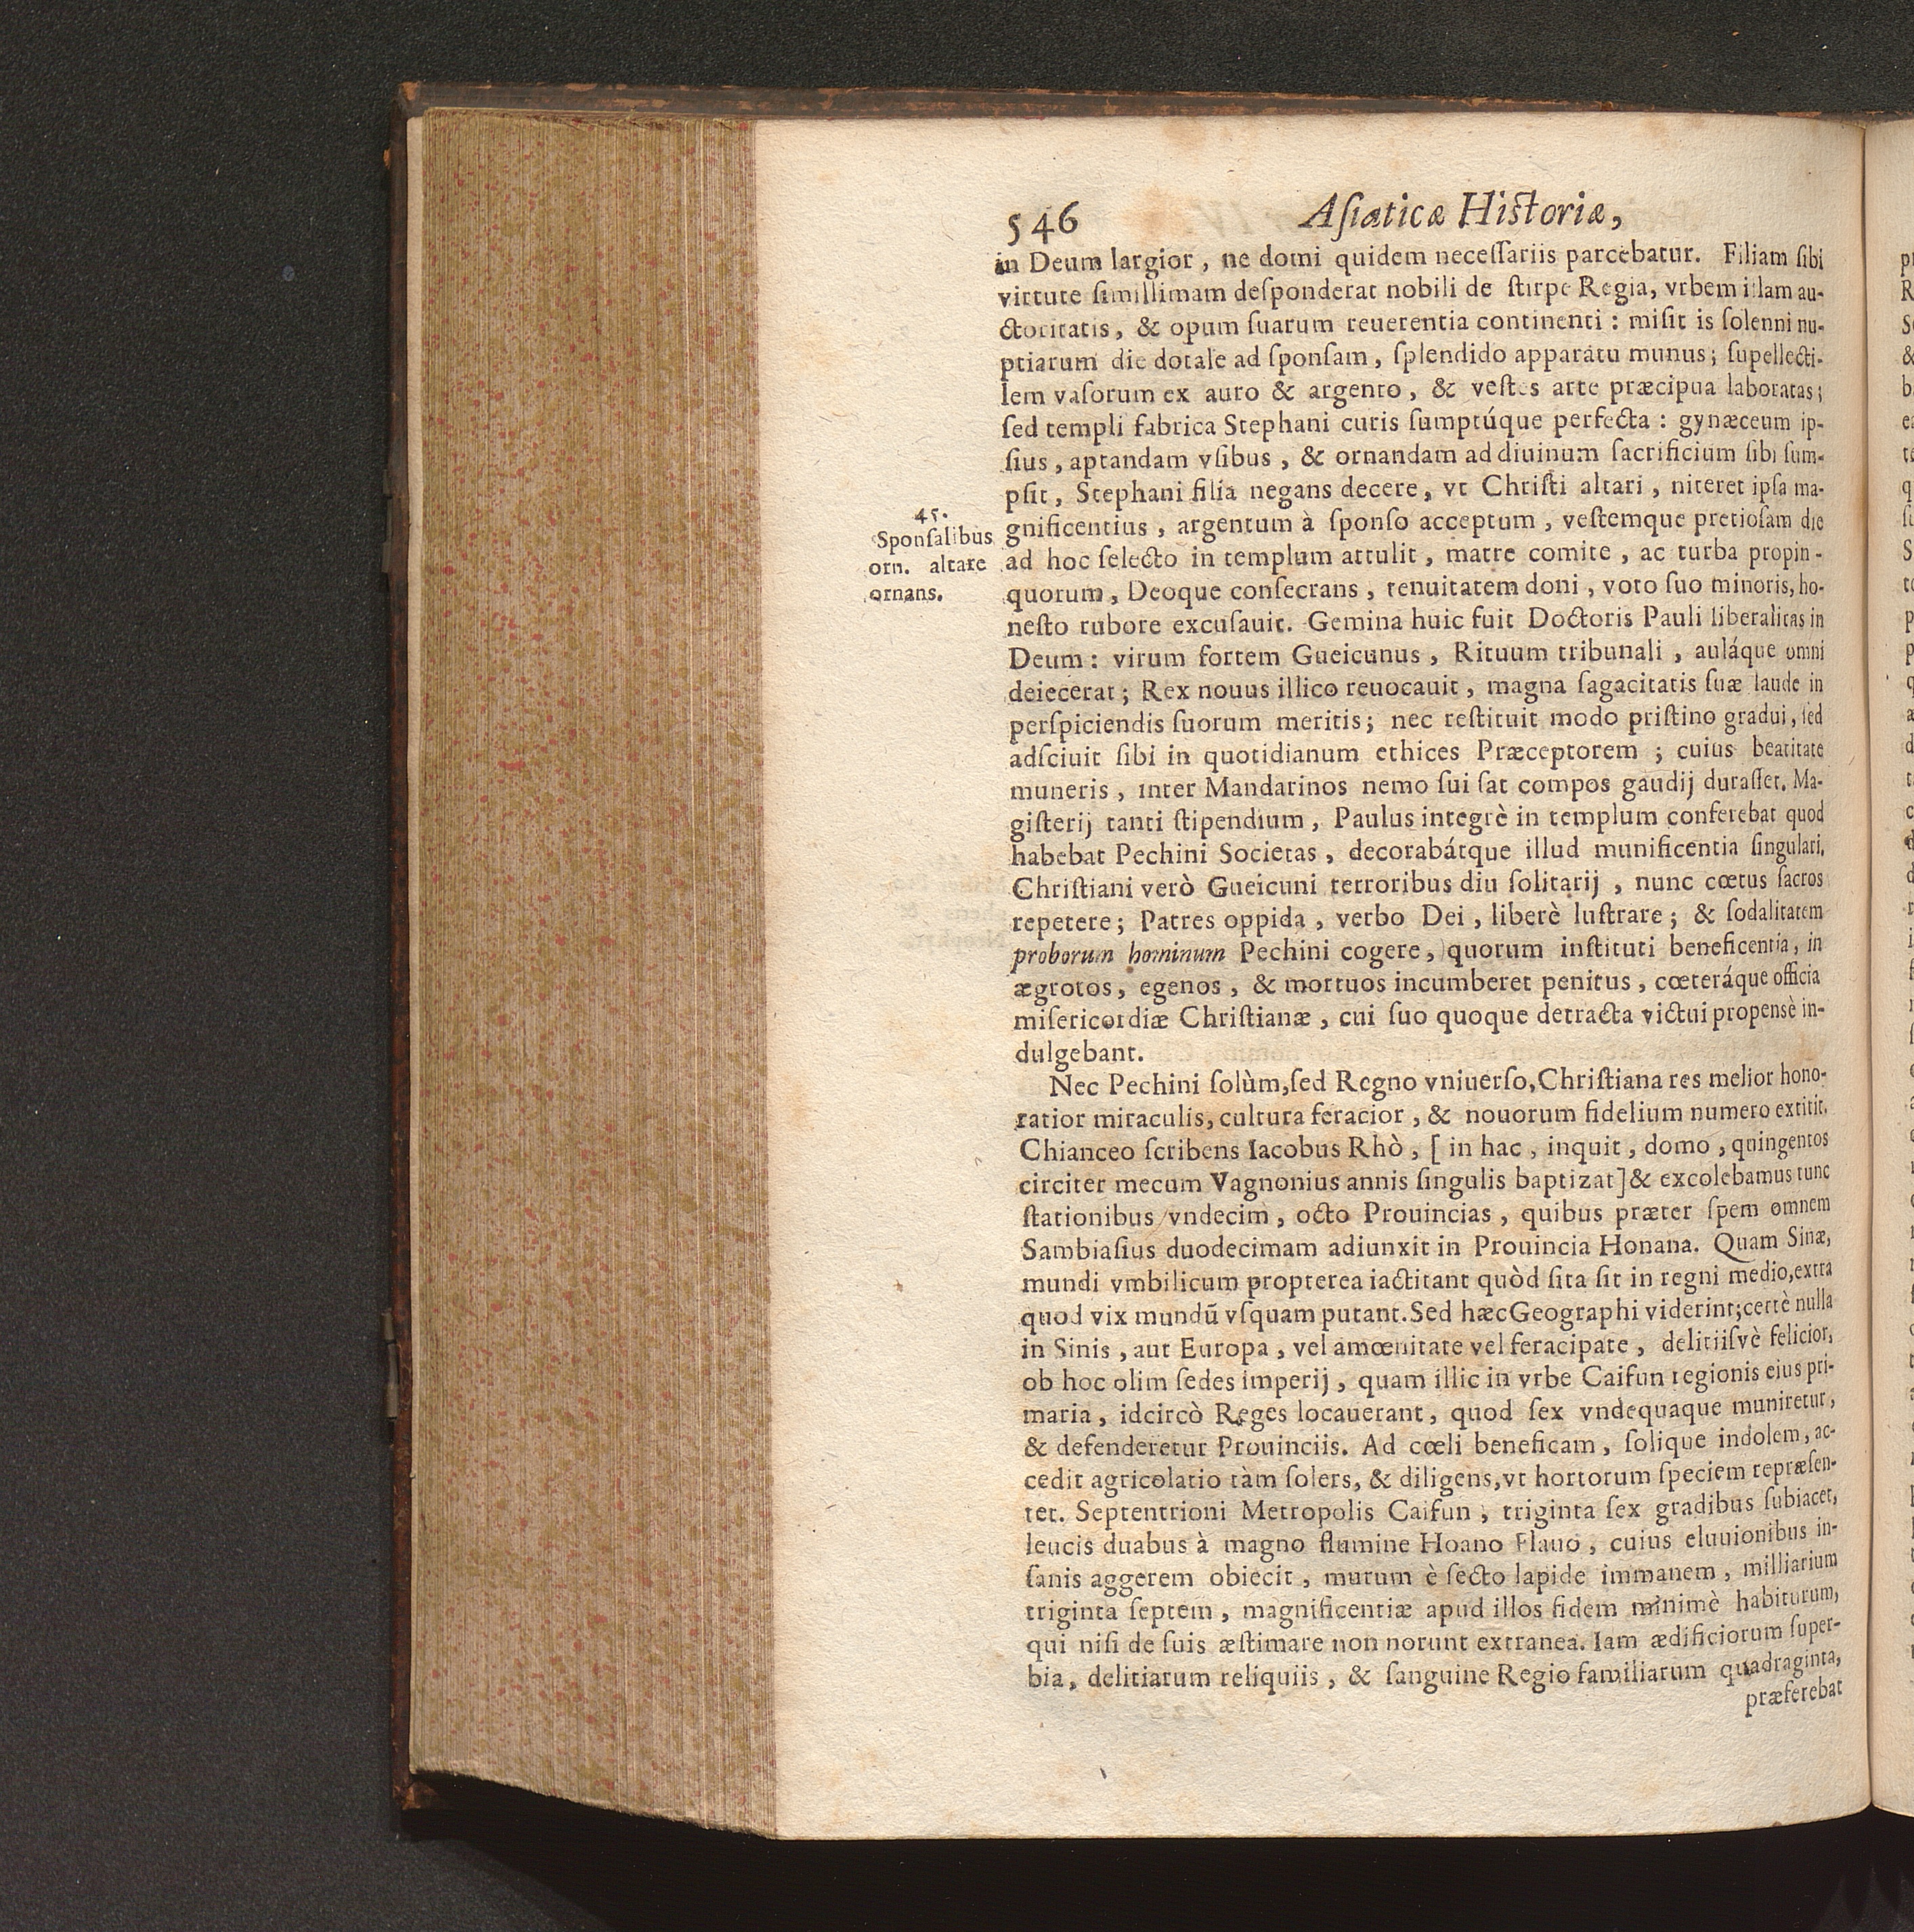 546 Aſiaticæ Hiſtoriæ,
in Deum largior, ne domi quidem neceſſariis parcebatur. Filiam ſibi
virtute ſimillimam deſponderat nobili de ſtirpe Regia, vrbem illam au-
ctoritatis, & opum ſuarum reuerentia continenti : miſit is ſolenni nu-
ptiarum die dotale ad ſponſam, ſplendido apparatu munus; ſupellecti-
lem vaſorum ex auro & argento, & veſtes arte præcipua laboratas;
ſed templi fabrica Stephani curis ſumptúque perfecta : gynæceum ip-
ſius, aptandam vſibus, & ornandam ad diuinum ſacrificium ſibi ſum-
pſit, Stephani filia negans decere, vt Chriſti altari, niteret ipſa ma-
gnificentius, argentum à ſponſo acceptum, veſtemque pretioſam die
ad hoc ſelecto in templum attulit, matre comite, ac turba propin-
quorum, Deoque conſecrans, tenuitatem doni, voto ſuo minoris, ho-
neſto rubore excuſauit. Gemina huic fuit Doctoris Pauli liberalitas in
Deum : virum fortem Gueicunus, Rituum tribunali, auláque omni
deiecerat; Rex nouus illico reuocauit, magna ſagacitatis ſuæ laude in
perſpiciendis ſuorum meritis; nec reſtituit modo priſtino gradui, ſed
adſciuit ſibi in quotidianum ethices Præceptorem ; cuius beatitate
muneris, inter Mandarinos nemo ſui ſat compos gaudij duraſſet. Ma-
giſterij tanti ſtipendium, Paulus integrè in templum conferebat quod
habebat Pechini Societas, decorabátque illud munificentia ſingulari.
Chriſtiani verò Gueicuni terroribus diu ſolitarij, nunc cœtus ſacros
repetere; Patres oppida, verbo Dei, liberè luſtrare; & ſodalitatem
proborum hominum Pechini cogere, quorum inſtituti beneficentia, in
ægrotos, egenos, & mortuos incumberet penitus, cœteráque officia
miſericordiæ Chriſtianæ, cui ſuo quoque detracta victui propensè in-
dulgebant.
45.
Sponſalibus
orn. altare
ornans.
Nec Pechini ſolùm, ſed Regno vniuerſo, Chriſtiana res melior hono-
ratior miraculis, cultura feracior, & nouorum fidelium numero extitit.
Chianceo ſcribens Iacobus Rhò, [ in hac, inquit, domo, quingentos
circiter mecum Vagnonius annis ſingulis baptizat ] & excolebamus tunc
ſtationibus vndecim, octo Prouincias, quibus præter ſpem omnem
Sambiaſius duodecimam adiunxit in Prouincia Honana. Quam Sinæ,
mundi vmbilicum propterea iactitant quòd ſita ſit in regni medio, extra
quod vix mundũ vſquam putant. Sed hæc Geographi viderint; certè nulla
in Sinis, aut Europa, vel amœnitate vel feracipate, delitiiſvè felicior,
ob hoc olim ſedes imperij, quam illic in vrbe Caifun regionis eius pri-
maria, idcircò Reges locauerant, quod ſex vndequaque muniretur,
& defenderetur Prouinciis. Ad cœli beneficam, ſolique indolem, ac-
cedit agricolatio tàm ſolers, & diligens, vt hortorum ſpeciem repræſen-
tet. Septentrioni Metropolis Caifun, triginta ſex gradibus ſubiacet,
leucis duabus à magno flumine Hoano Flauo, cuius eluuionibus in-
ſanis aggerem obiecit, murum è ſecto lapide immanem, milliarium
triginta ſeptem, magnificentiæ apud illos fidem minimè habiturum,
qui niſi de ſuis æſtimare non norunt extranea. Iam ædificiorum ſuper-
bia, delitiarum reliquiis, & ſanguine Regio familiarum quadraginta,
præferebat